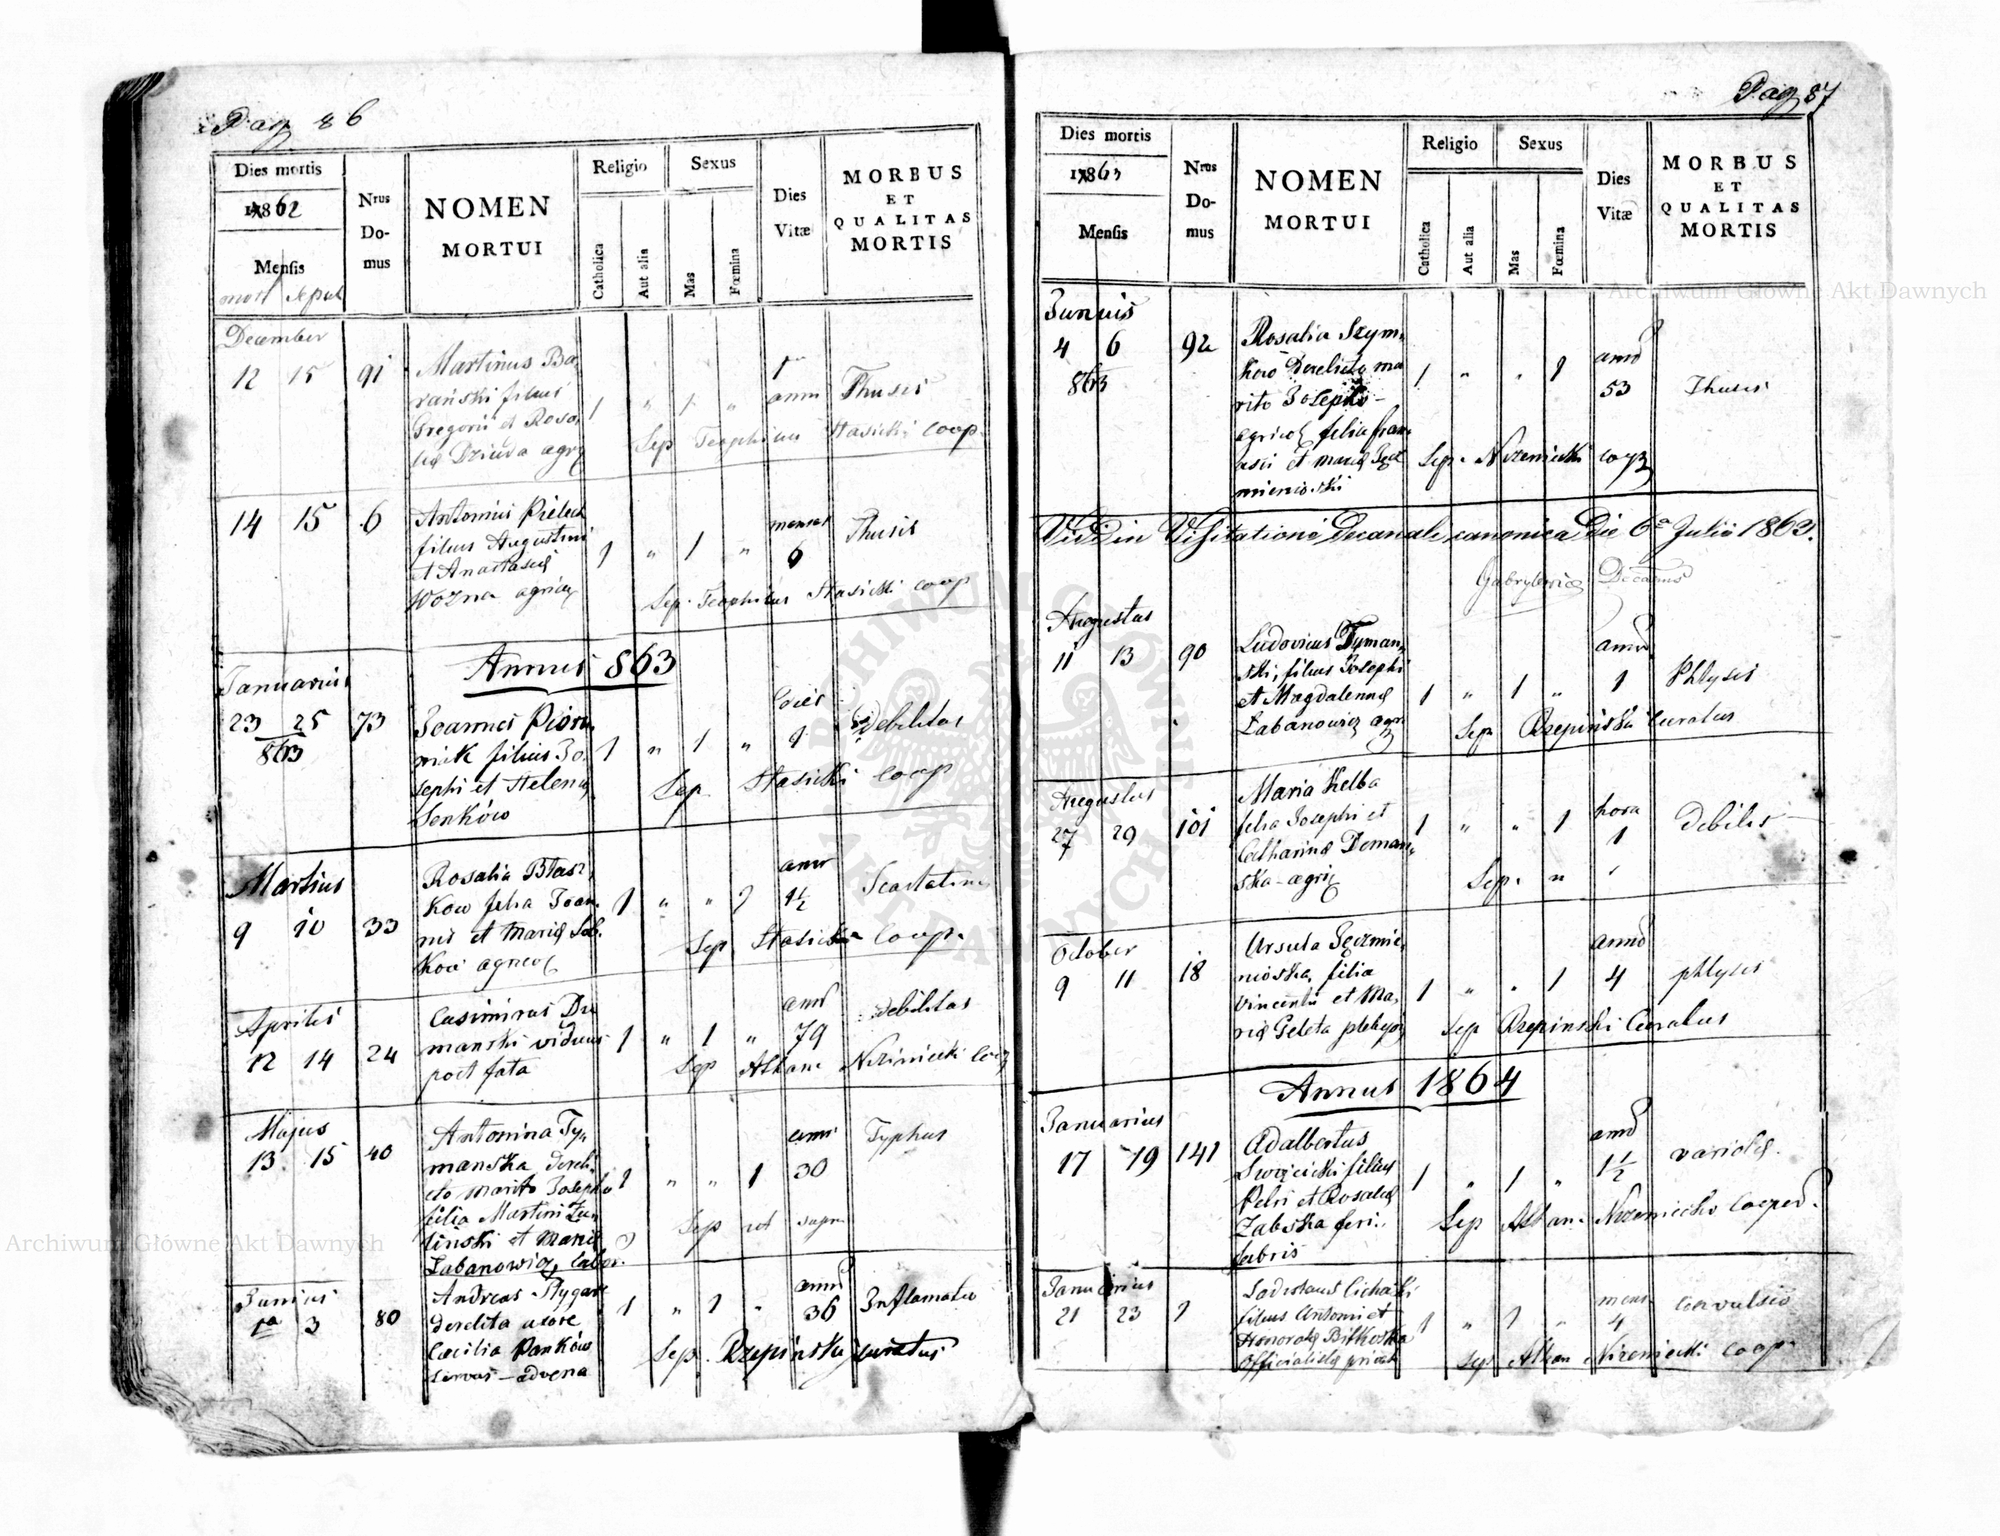 Pag 86
Dies mortis
1862
Mensis
mort Sepul
Nrus
Do-
mus
NOMEN
MORTUI
Religio
Catholica
Aut alia
Sexus
Mas
Fœmina
Dies
Vitæ
MORBUS
ET
QUALITAS
MORTIS
December
12 15 91
Martinus Ba-
rański filius
Gregorii et Rosa-
liæ Dziuda agr
1 " 1 "
1
anni
Thusis
Sep Teophilus Stasicki coop.
14 15 6
Antonius Pielech
filius Augustini
et Anastasiæ
Wozna agric
1 " 1 "
menses
6
Thusis
Sep. Teophilus Stasicki coop
Annus 863
Januarius
23 25 73
863
Joannes Pion
nik filius Jo-
sephi et Helenæ
Senków
1 " 1 "
dies
1
Debilitas
Sep. Stasicki coop
Martius
9 10 33
Rosalia Błasz
ków filia Joan-
nis et Mariæ
ków agricol
1 " " 1
anni
1½
Scarlatina
Sep Stasicki Coop.
Aprilis
12 14 24
Casimirus Du
manski viduus
post fata
1 " 1 "
anni
79
Debilitas
Sep Alban Niziniecki Coop
Majus
13 15 40
Antonina Ty-
manska dereli-
cto marito Josepho
filia Martini
et Mariæ
Labanowicz, labor.
1 " " 1
anni
30
Typhus
Sep ut supra
Junius
1a 3 80
Andreas Stygar
derelita uxore
Cæcilia Panków
servus - advena
1 " 1 "
anni
36
Inflamatio
Sep. Rzepiński curatus
Pag 87
Dies mortis
1863
Mensis
Nrus
Do-
mus
NOMEN
MORTUI
Religio
Catholica
Aut alia
Sexus
Mas
Fœmina
Dies
Vitæ
MORBUS
ET
QUALITAS
MORTIS
Junius
4 6 92
863
Rosalia Szym-
ków Derelicto ma
rito Josepho -
agricol filia fran-
cisci et Mariæ
mieniośki
1 " " 1
anno
53
Thusis
Sep. Niżeniecki coop
Vidi in Visitatione Decanale canonica Die 6a Julii 1863.
Gabrylewicz Decanus
Augustus
11 13 90
Ludovicus Tyman-
ski, filius Josephi
et Magdalenæ
Labanowicz agr
1 " 1 "
anno
1
Phtysis
Sep Rzepiński Curatus
Augustus
27 29 101
Maria Kelba
filia Josephi et
Catharinæ Doman-
ska - agric
1 " " 1
hora
1
debilis
Sep. "
October
9 11 18
Ursula
nioska, filia
Vincentii et Ma-
riæ Geleta plebeji
1 " " 1
anno
4
phtysis
Sep Rzepinski Curatus
Annus 1864
Januarius
17 19 141
Adalbertus
Swięcicki filius
Petri et Rosaliæ
Zabska feri-
fabris
1 " 1 "
anno
1½
variolæ.
Sep Alban. Niżeniecki Cooper.
Januarius
21 23 1
Ladislaus Cichalski
filius Antoni et
Honoratæ Bitkoska
Officialistæ privati
1 " 1 "
mens
4
Convulsio
Sep Alban Niżeniecki coop.
Archiwum Główne Akt Dawnych
Archiwum Główne Akt Dawnych
ARCHIWUM GŁÓWNE AKT DAWNYCH